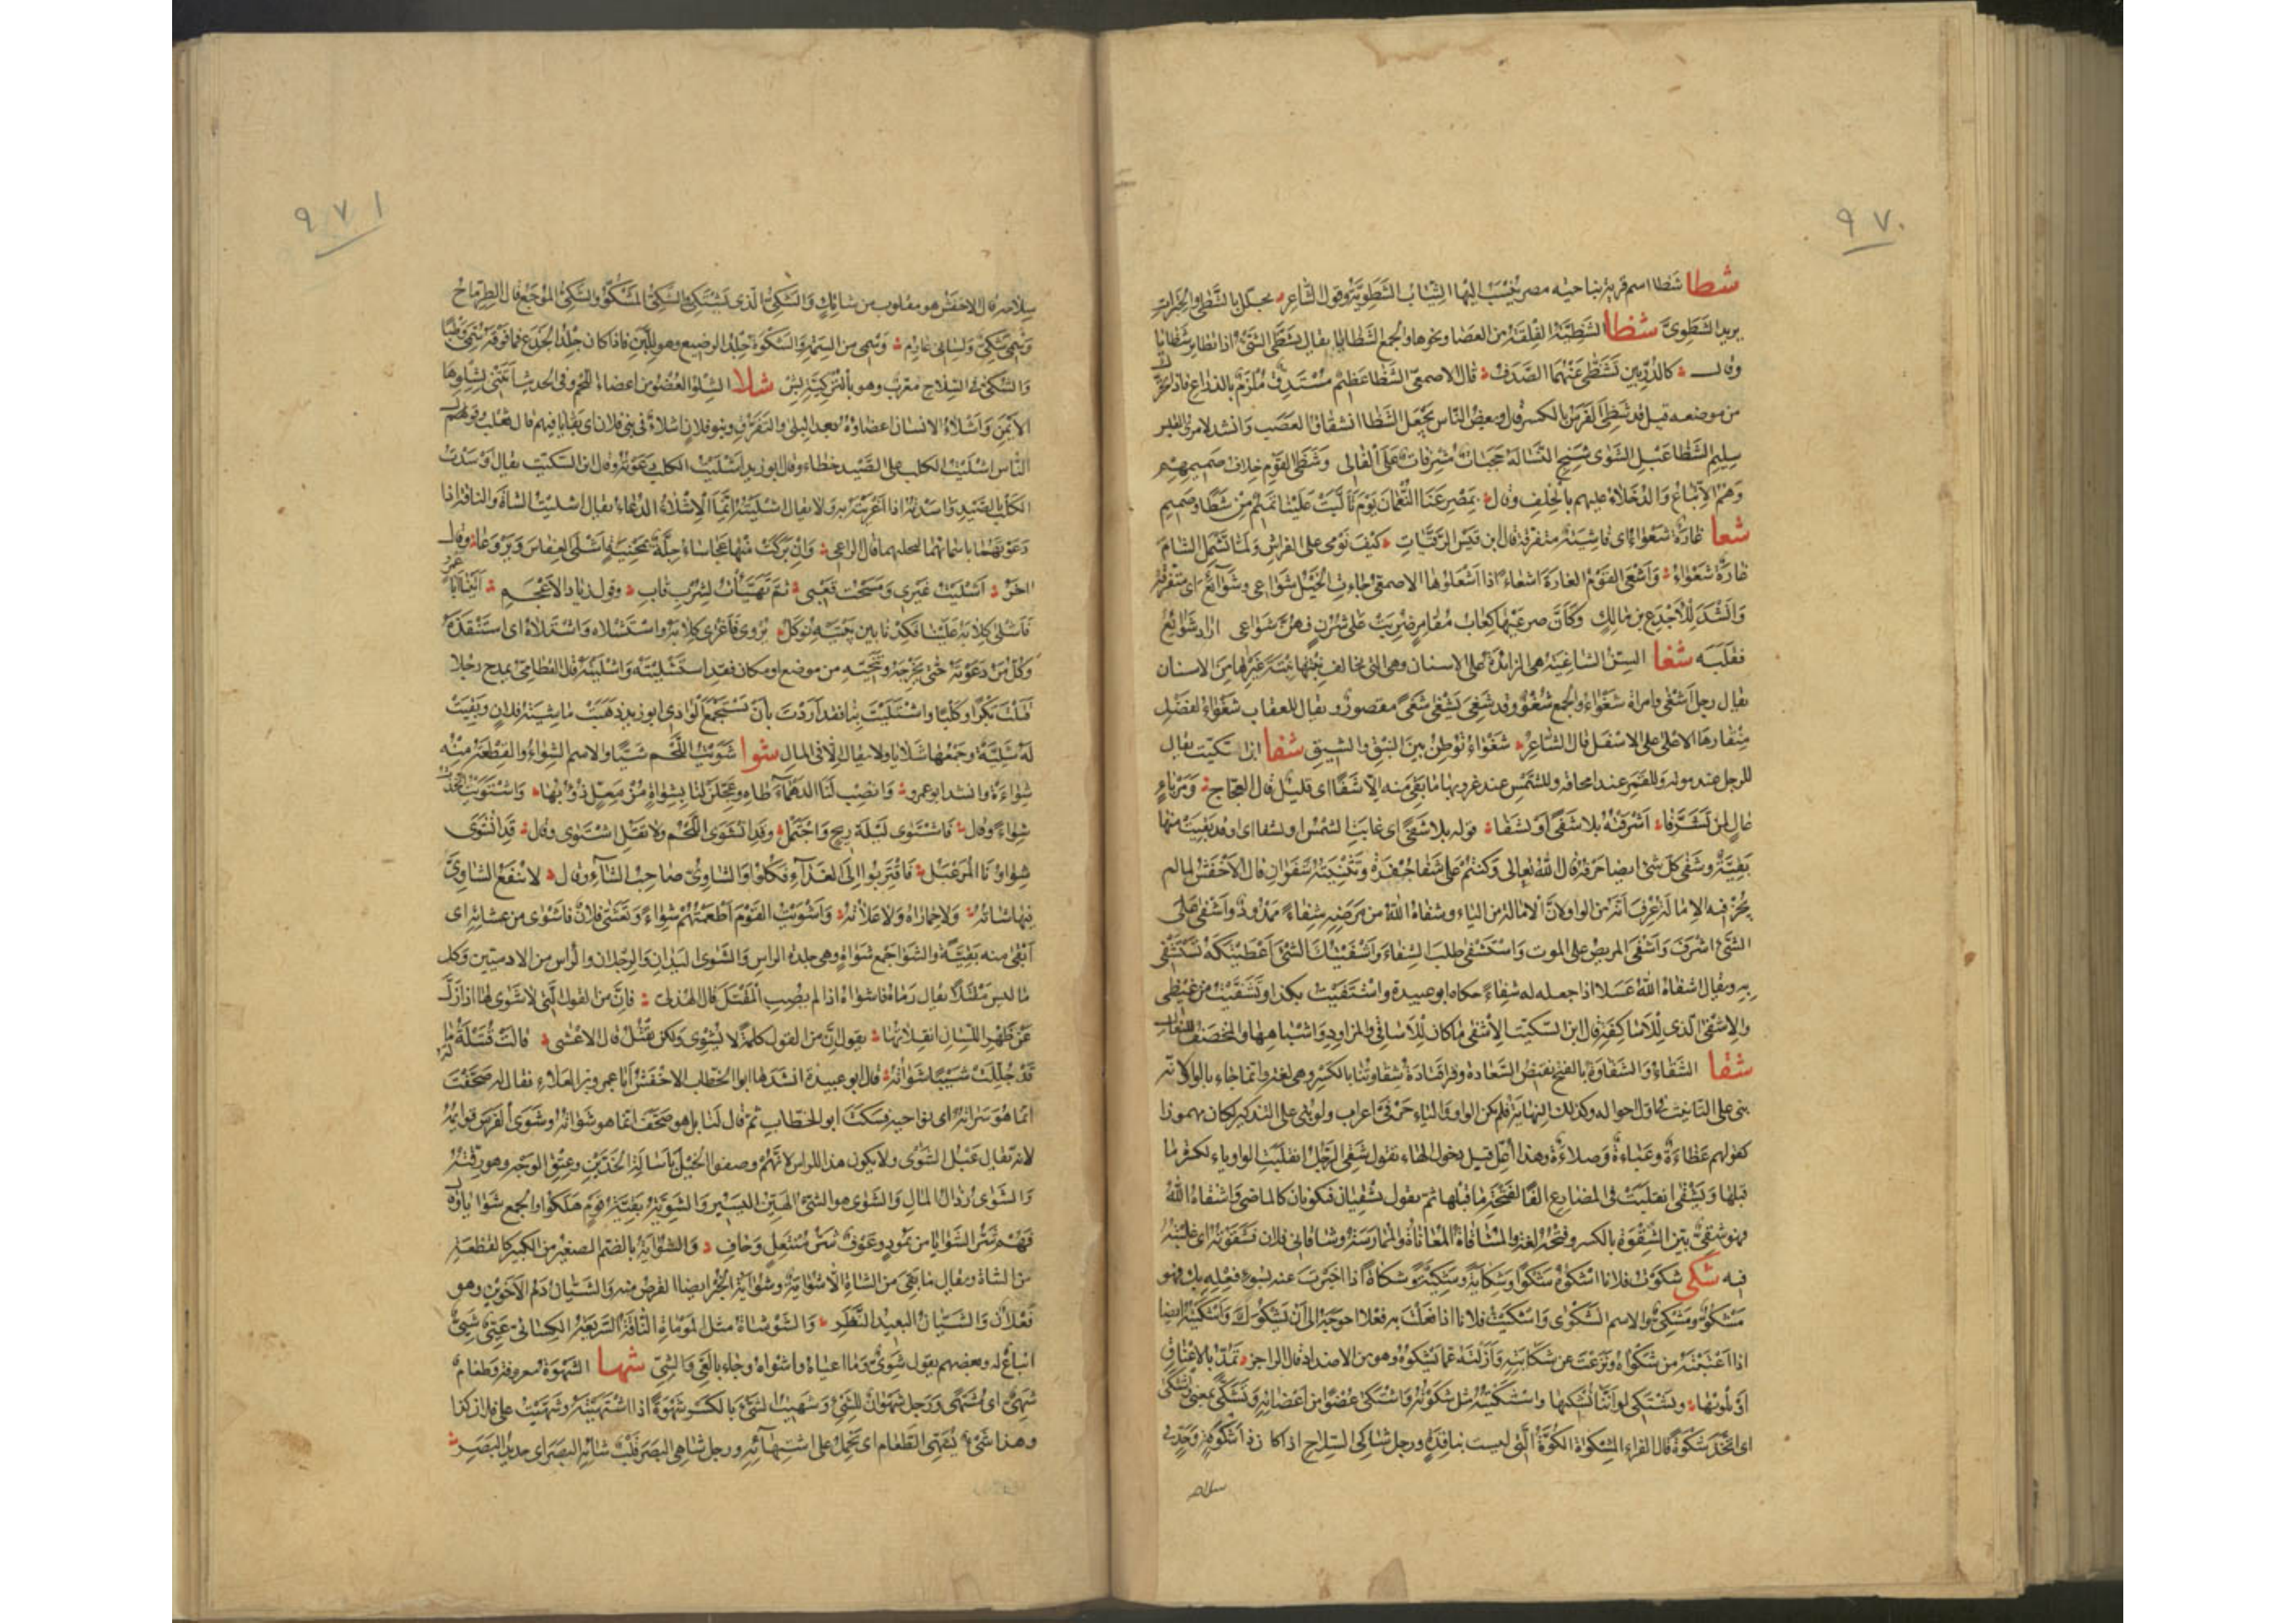 ٩٧٠
شطا شطا اسم قرية بناحية مصر ينسب اليها الثياب الشطوية وقول الشاعر تجلل بالشطى والحبرات
يريد الشطوى شظا الشظية الفلقة من العصا ونحوها والجمع الشظايا يقال تشظى الشئ اذا تطاير شظايا
وقال كالدرتين تشظى عنهما الصدف قال الاصمعى الشظا عظيم مستدق ملزق بالذراع فاذا تحرك
من موضعه قيل قد شظى الفرس بالكسر قال وبعض الناس يجعل الشظا انشقاق العصب وانشد لامرئ القيس
سليم الشظا عبل الشوى شنج النسا له حجبات مشرفات على الفالى وشظى القوم خلاف صميمهم
وهم الاتباع والدخلاء عليهم بالحلف وقال بمصرعنا النعمان يوم تألبت علينا تميم من شظا وصميم
شعا غارة شعواء اى فاشية متفرقة قال ابن قيس الرقيات كيف نومى على الفراش ولما تشمل الشام
غارة شعواء واشعى القوم الغارة اشعاء اذا اشعلوها الاصمعى جاءت الخيل شواعى وشوائع اى متفرقة
وانشد للاجدع بن مالك وكأن صرعيها كعاب مقامر ضربت على شزن فهن شواعى اراد شوائع
فقلبه شغا السن الشاغية هى الزائدة على الاسنان وهى التى يخالف نبتها نبتة غيرها من الاسنان
يقال رجل اشغى وامراة شغواء والجمع شغو وقد شغى يشغى شغى مقصور ويقال للعقاب شغواء لفضل
منقارها الاعلى على الاسفل قال الشاعر شغواء توطن بين الشيق والنيق شفا ابن السكيت يقال
للرجل عند موته وللقمر عند امحاقه وللشمس عند غروبها ما بقى منه الا شفا اى قليل قال العجاج ومرباء
عال لمن تشرفا اشرفته بلا شفى او بشفا قوله بلا شفى اى غابت الشمس او بشفا اى وقد بقيت منها
بقية وشفى كل شئ ايضا حرفه قال الله تعالى وكنتم على شفا حفرة وتثنيته شفوان قال الاخفش لما لم
يجز فيه الامالة عرف انه من الواو لان الامالة من الياء وشفاه الله من مرضه شفاء ممدود واشفى على
الشئ اشرف واشفى المريض على الموت واستشفى طلب الشفاء واشفيتك الشئ اعطيتكه تستشفى
به ويقال اشفاه الله عسلا اذا جعله له شفاء حكاه ابو عبيدة واشتفيت بكذا وتشفيت من غيظى
والاشفى الذى للاساكفة قال ابن السكيت الاشفى ما كان للاساقى والمزاود واشباهها والمخصف للنعال
شقا الشقاء والشقاوة بالفتح نقيض السعادة وقرا قتادة شقاوتنا بالكسر وهى لغة وانما جاء بالواو لانه
بنى على التانيث فى اول احواله وكذلك النهاية فلم تكن الواو والياء حرفى اعراب ولو بنى على التذكير لكان مهموزا
كقولهم عظاءة وعباءة وصلاءة وهذا اعل قبل دخول الهاء تقول شقى الرجل انقلبت الواو ياء لكسرة ما
قبلها ويشقى انقلبت فى المضارع الفا لفتحة ما قبلها ثم تقول يشقيان فيكونان كالماضى واشقاه الله
فهو شقى بين الشقوة بالكسر وفتحه لغة والمشاقاة المعاناة والممارسة وشاقانى فلان فشقوته اى غلبته
فيه شكى شكوت فلانا اشكوه شكوا وشكاية وشكية وشكاة اذا اخبرت عنه بسوء فعله بك فهو
مشكو ومشكى والاسم الشكوى واشكيت فلانا اذا فعلت به فعلا احوجته الى ان يشكوك واشكيته ايضا
اذا اعتبته من شكواه ونزعت عن شكايته وازلته عما يشكوه وهو من الاضداد قال الراجز تمد بالاعناق
او تلويها وتشتكى لو اننا نشكيها واشتكيته مثل شكوته واشتكى عضوا من اعضائه وتشكى بمعنى واشتكى
اى اتخذ شكوة قال الفراء المشكوة الكوة التى ليست بنافذة ورجل شاكى السلاح اذا كان ذا شوكة وحد فى
سلاحه
٩٧١
سلاحه قال الاخفش هو مقلوب من شائك والشكى الذى يشتكى والشكى المشكو والشكى الموجع قال الطرماح
وسمى شكى ولسانى عارم وسمى من السمة والشكوة جلد الرضيع وهو للبن فاذا كان جلد الجذع فما فوقه سمى وطبا
والشكى فى السلاح معرب وهو بالتركية بش شلا الشلو العضو من اعضاء اللحم وفى الحديث ائتنى بشلوها
الايمن واشلاء الانسان اعضاؤه بعد البلى والتفرق وبنو فلان اشلاء فى بنى فلان اى بقايا فيهم قال ثعلب وقول
الناس اشليت الكلب على الصيد خطاء وقال ابو زيد اشليت الكلب دعوته وقال ابن السكيت يقال اوسدت
الكلب بالصيد واسدته اذا اغريته به ولا يقال اشليته انما الاشلاء الدعاء يقال اشليت الشاة والناقة اذا
دعوتهما باسمائهما لتحلبهما قال الراعى وان بركت منها عجاساء جلة بمحنية اشلى العفاس وبروعا وقال
اخر اشليت عنزى ومسحت قعبى ثم تهيأت لشرب قاب وقول زياد الاعجم اتينا ابا عمرو
فاشلى كلابه علينا فكدنا بين بيتيه نوكل يروى فاغرى كلابه واستشلاه واشتلاه اى استنقذه
وكل من دعوته حتى تخرجه وتنجيه من موضع او مكان فقد استشليته واشليته قال القطامى يمدح رجلا
قتلت بكرا وكلبا واشتليت بنا فقد اردت بأن تستجمع الوادى ابو زيد ذهبت ماشية فلان وبقيت
له شلية وجمعها شلايا ولا يقال الا فى المال شوا شويت اللحم شيا والاسم الشواء والقطعة منه
شواءة وانشد ابو عمرو وانصب لنا الدهماء طاهى وعجلن لنا بشواة مرمعل ذؤوبها واشتويت اتخذت
شواء وقال فاشتوى ليلة ريح واجتمل وقد انشوى اللحم ولا تقل اشتوى وقال قد انشوى
شواؤنا المرعبل فاقتربوا الى الغداء فكلوا والشاوى صاحب الشاء وقال لا تنفع الشاوى
فيها شاته ولا حماراه ولا علاته واشويت القوم اطعمتهم شواء وتعشى فلان فاشوى من عشائه اى
ابقى منه بقية والشوا جمع شواة وهى جلدة الراس والشوى اليدان والرجلان والراس من الادميين وكل
ما ليس مقتلا يقال رماه فاشواه اذا لم يصب المقتل قال الهذلى فان من القول التى لا شوى لها اذا زل
عن ظهر اللسان انفلاتها يقول ان من القول كلمة لا تشوى ولكن تقتل قال الاعشى قالت قتيلة ما له
قد جللت شيبا شواته قال ابو عبيدة انشدها ابو الخطاب الاخفش ابا عمرو بن العلاء فقال له صحفت
انما هو سراته اى نواحيه فسكت ابو الخطاب ثم قال لنا بل هو صحف انما هو شواته وشوى الفرس قوائمه
لانه يقال عبل الشوى ولا يكون هذا للراس لانهم وصفوا الخيل باسالة الخدين وعتق الوجه وهو رقته
والشوى رذال المال والشوى هو الشئ الهين اليسير والشوية بقية قوم هلكوا والجمع شوايا وقال
فهم شر الشوايا من ثمود وعوف شر منتعل وحاف والشواية بالضم الصغير من الكبير كالقطعة
من الشاة ويقال ما بقى من الشاة الا شواية وشواية الخبز ايضا القرص منه والشيان دم الاخوين وهو
فعلان والشيان البعيد النظر والشوشاة مثل الموماة الناقة السريعة الكسائى عيى شيى
اتباع له وبعضهم يقول شوى وما اعياه واشواه وجاء بالعى والشى شها الشهوة معروفة وطعام
شهى اى مشتهى ورجل شهوان للشئ وشهيت الشئ بالكسر شهوة اذا اشتهيته وتشهيت على فلان كذا
وهذا شئ يشهى الطعام اى يحمل على اشتهائه ورجل شاهى البصر قلب شائه البصر اى حديد البصر